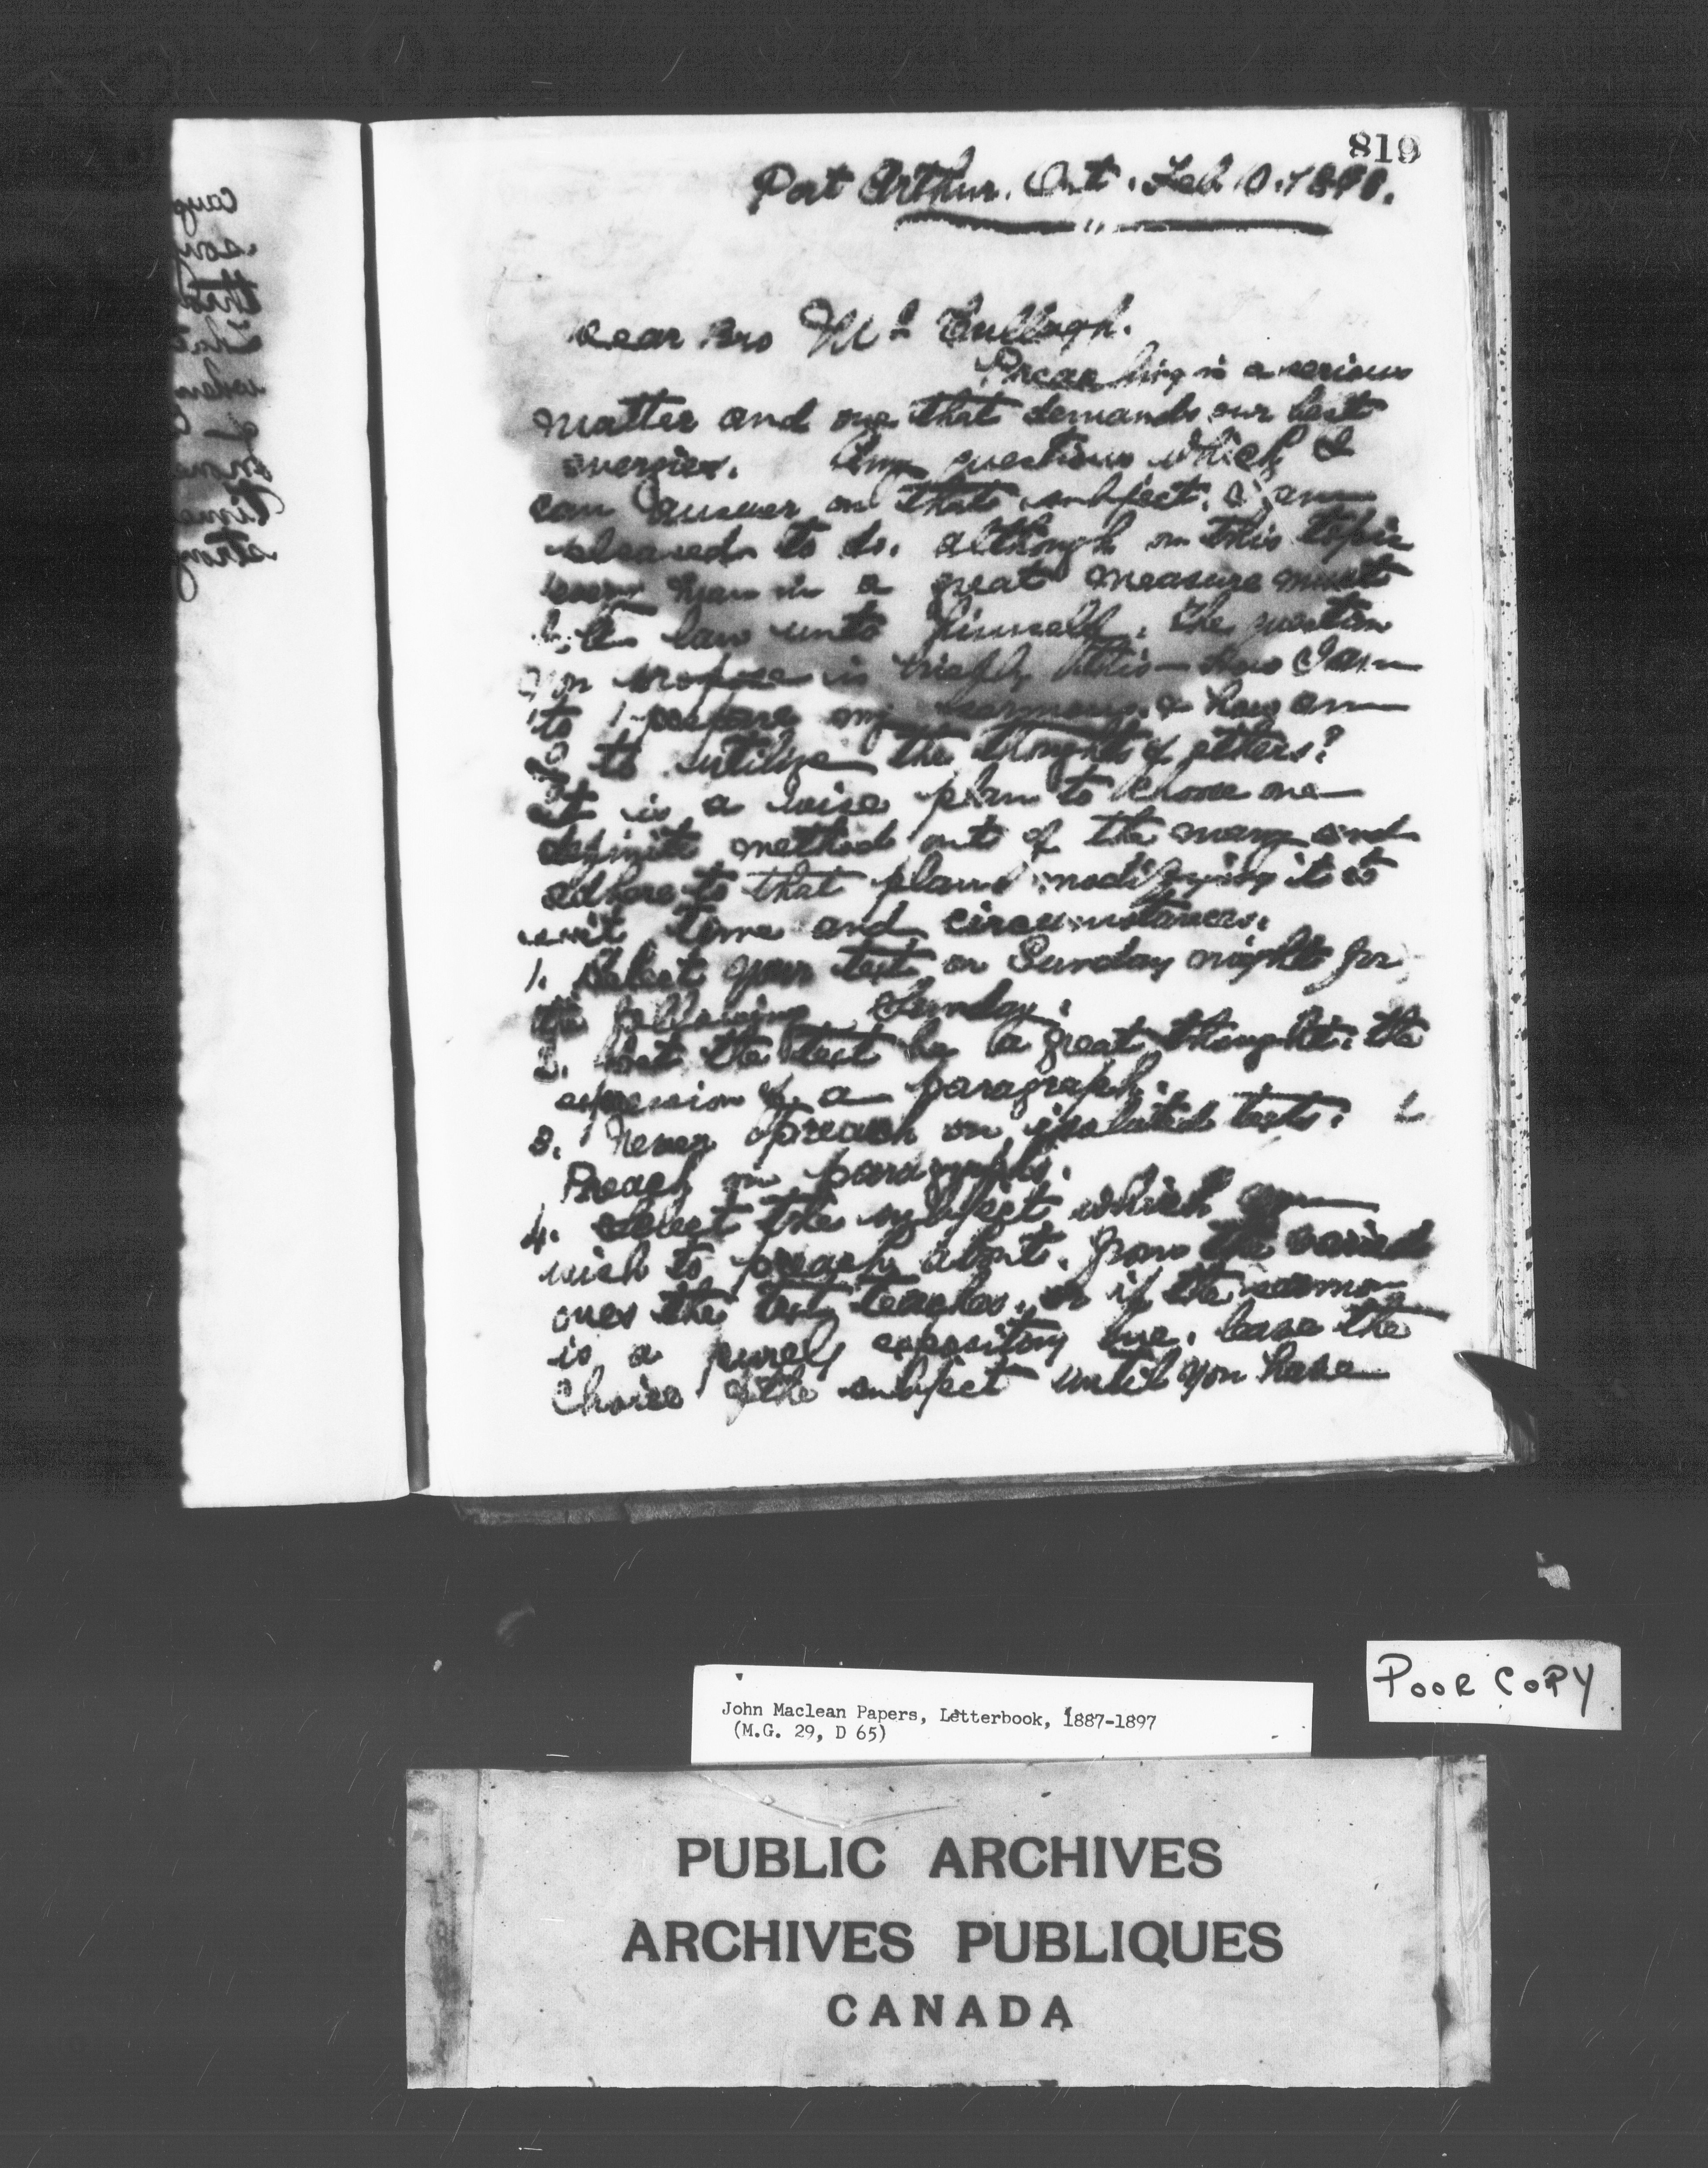 819
Port Arthur, Ont. Feb
Dear Bro Mc Cullagh.
Preaching is a serious
matter and one that demands our best
energies. Any questions which I
can answer on that subject, I am
pleased to do, although on this topic
every man in a great measure must
be a law unto himself. The question
you propose is briefly this - How I am
to prepare my sermons, & how am
I to utilize the thoughts of others?
It is a wise plan to choose one
definite method out of the many and
adhere to that plan modifying it to
suit time and circumstances.
1. Select your text on Sunday night for
the following Sunday.
2. Let the text be a great thought: the
expression of a paragraph.
3. Never preach on isolated texts.
Preach in paragraphs.
4. Select the subject which you
wish to preach about, from the varied
ones the text teaches, or if the sermon
is a purely expository one, leave the
choice of the subject until you have
POOR COPY
John Maclean Papers, Letterbook, 1887-1897
(M.G. 29, D 65)
PUBLIC ARCHIVES
ARCHIVES PUBLIQUES
CANADA